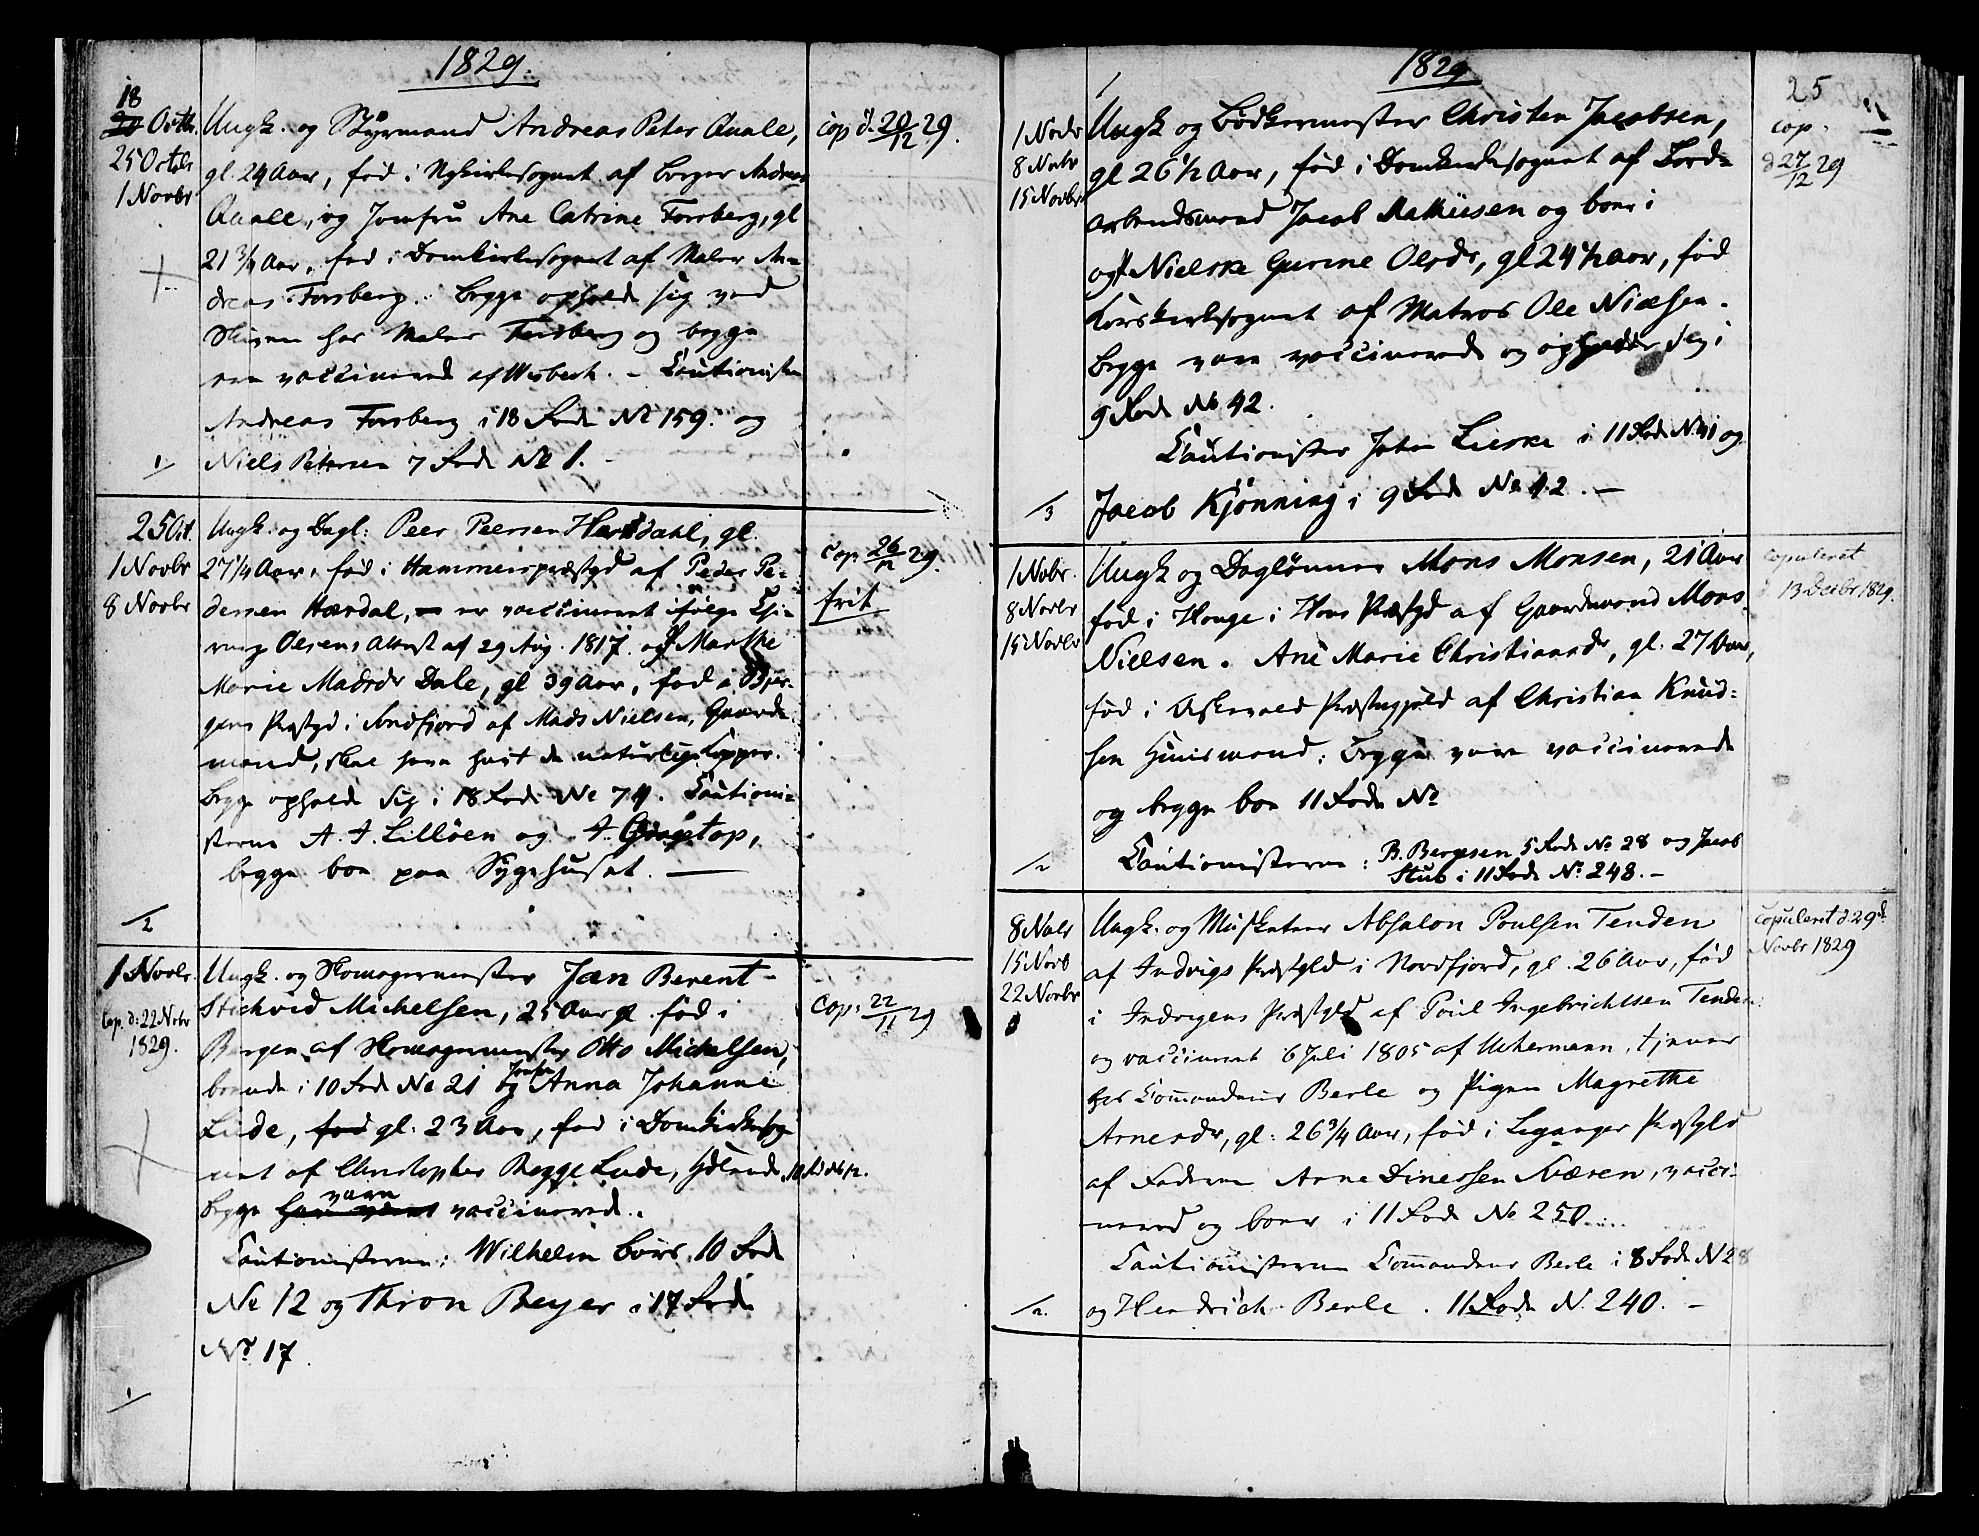 1829.
18
20 Octbr.
25 Octbr
1 Novbr
Ungk. og Styrmand Andreas Peter Quale,
gl. 24 Aar, fød i Nykirkesognet af Borger Andreas
Quale, og Jomfru Ane Catrine Forsberg, gl
21 3/4 Aar, fød i Domkirkesognet af Maler An-
dreas Forsberg. Begge opholde sig ved
hos Maler Forsberg og begge
ere vaccinered af Wisbech. - Cautionister
Andreas Forsberg i 18 Rode No 159. og
Niels Petersen 7 Rode No 1. -
Cop d. 20/12 29.
1/
25 Oct.
1 Novbr
8 Novbr
Ungk. og Dagl: Peer Peersen Hardahl, gl.
27 1/4 Aar, fød i Hammers præstgd af Peder Pe-
dersen Hærdal, er vaccineret ifølge
Olsens Attest af 29 Aug. 1817. og P Marthe
Marie Madsdr Dale, gl 39 Aar, fød i
Præstgd i af Mads Nielsen, Gaard-
mand, skal have havt de naturlige Kopper.
begge opholde sig i 18 Rode No 74. Cautioni-
sterne A. A. Lilløen og A.
begge boe paa Sygehuset. —
Cop. 26/11 29.
frit
/2
1 Novbr.
Cop. d: 22 Novbr
1829.
Ungk. og Skomagermester Jan Berent
Michelsen, 25 Aar fød i
Bergen af Skomagermester Otto Michelsen,
boende i 10 Rode No 21 og Jomfru Anna Johanne
Lude, fød gl. 23 Aar, fød i Domkirkesog-
net af Christopher Begge Lude, 10 Rode No 12.
begge vare vaccinerede.
Cautionisterne: Wilhelm Børs 10 Rode
No 12 og Thron Beyer i 17 Rode
No 17.
Cop. 22/11 29
1/
1829
25
1 Novbr
8 Novbr
15 Novbr
Ungk og Bødkermester Christen Jacobsen,
gl 26 1/2 Aar, fød i Domkirkesognet af Jord-
arbeidsmand Jacob Mathiesen og boer i
og P Nielske Gurine Olsdr, gl 24 1/2 Aar, fød
Korskirkesognet af Matros Ole Nielsen.
begge vare vaccinerede og opholder sig i
9 Rode No 42.
Cautionister John Lieske i 11 Rode No 41 og
Jacob Kjønning i 9 Rode No 42. —
cop.
d 27/12 29
/3
1 Novbr.
8 Novbr
15 Novbr
Ungk og Dagløner Mons Monsen, 21 Aar
fød i Houge i Hous Præstgd af Gaardmand Mons
Nielsen. Ane Marie Christiansdr, gl. 27 Aar,
fød i Askevold Præstegjeld af Christian Knud-
sen Huusmand: begge vare vaccinerede
og begge boe 11 Rode No
Cautionisterne: B. Bergesen 5 Rode No 28 og Jacob
Stub i 11 Rode No 248. —
copuleret
d. 13 Decbr 1829.
/2
8 Novbr
15 Novb
22 Novbr
Ungk. og Musketeer Absalon Poulsen Tenden
af Indvigs Præstgld i Nordfjord, gl. 26 Aar, fød
i Indvigens Præstgld af Poul Ingebrichtsen Tenden
og vaccineret 6 Juli 1805 af Uchermann, tjener
hos Commandeur Berle og Pigen Magrethe
Arnesdr, gl: 26 3/4 Aar, fød i Leganger Præstgld
af Faderen Arne Dinessen Næsen, vacci-
nered og boer i 11 Rode No 250.
Cautionisterne Commandeur Berle i 8 Rode N 28
og Hendrich Berle. 11 Rode N. 240. —
copuleret d. 29d
Novbr 1829
/2.